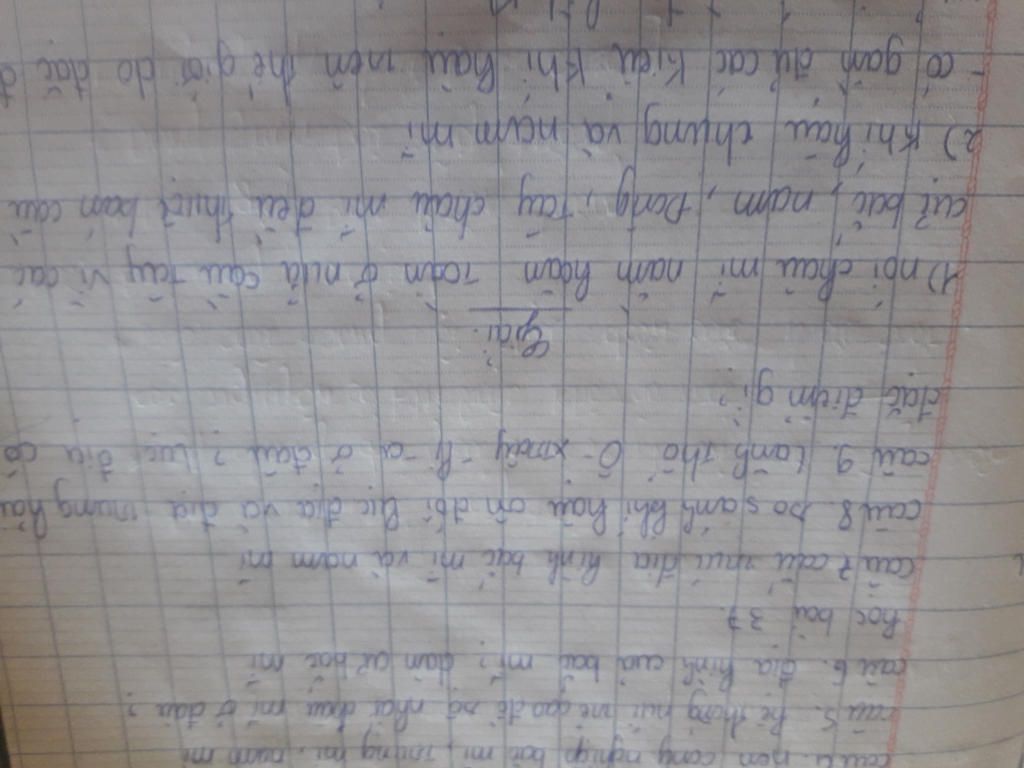 câu 4. nền công nghiệp bắc mĩ, trung mĩ, nam mĩ
câu 5. hệ thống núi
câu 6. địa hình của bắc mĩ? dân cư bắc mĩ
học bài 37.
câu 7 cấu trúc địa hình bắc mĩ và nam mĩ
câu 8. so sánh khí hậu ôn đới lục địa và địa trung hải
câu 9. Lãnh thổ Ô-xtrây-li-a ở đâu? Lục địa có
đặc điểm gì?
Giải:
1) nói châu mĩ nằm hoàn toàn ở nửa cầu Tây vì các
cực bắc, nam, Đông, Tây châu mĩ đều thuộc bán cầu
2) Khí hậu chung và nam mĩ
- có gần đủ các kiểu khí hậu trên thế giới do đặc đ